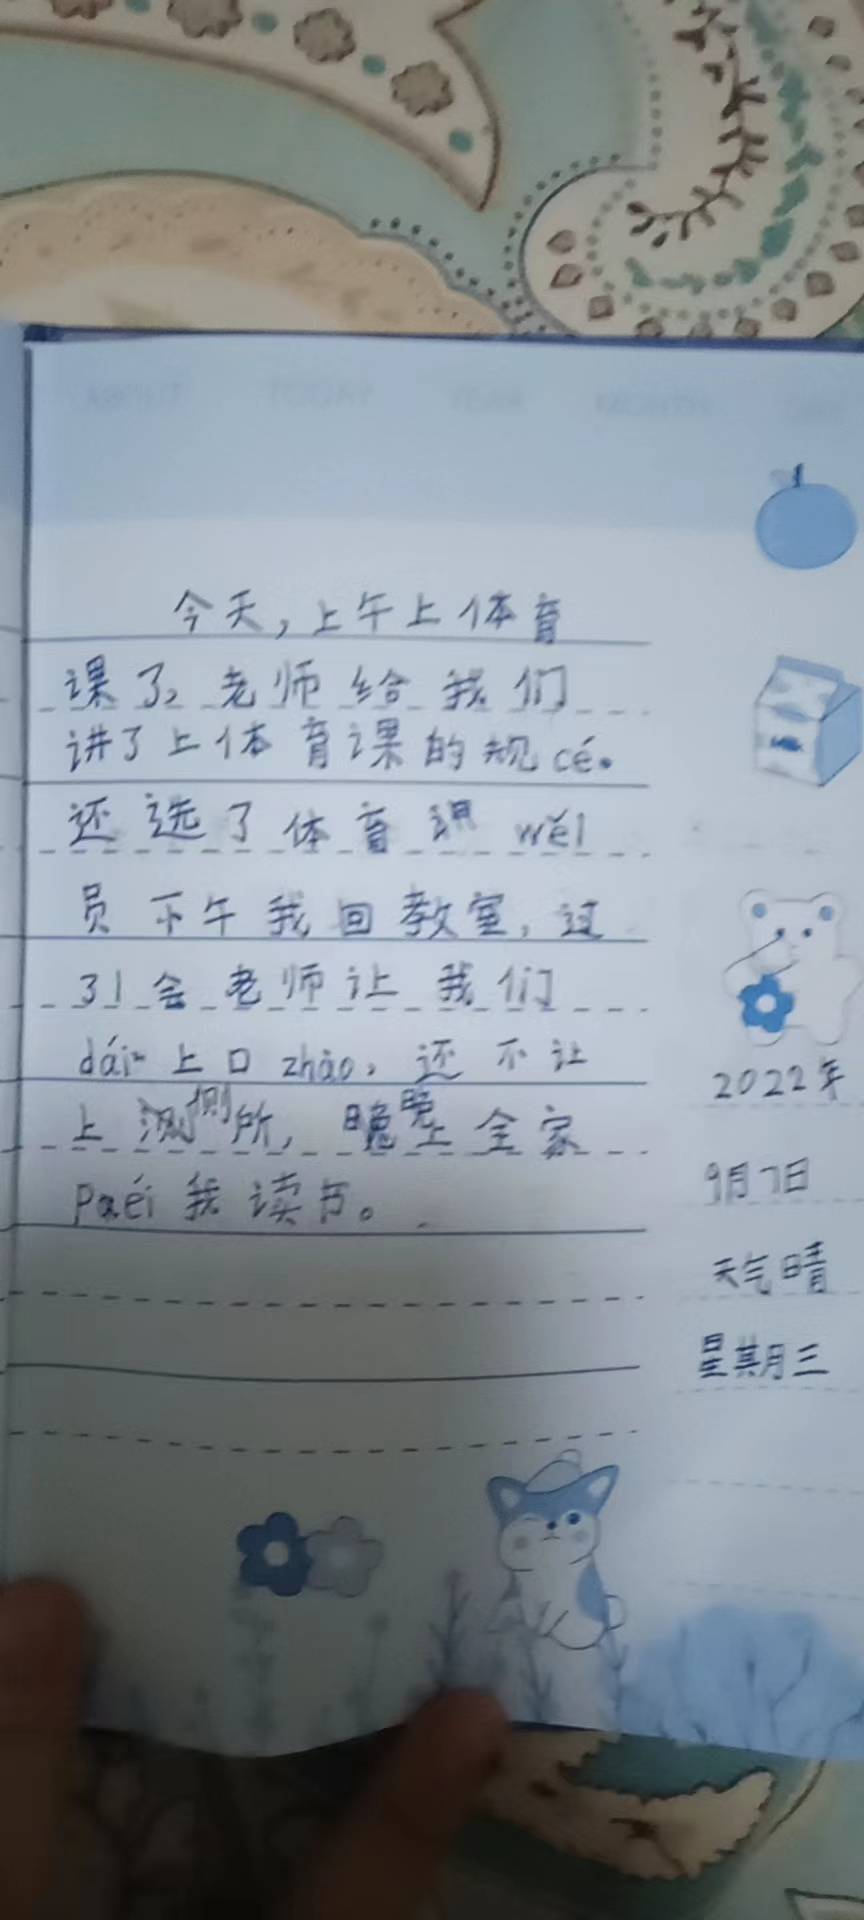 今天，上午上体育
课了，老师给我们
讲了上体育课的规cé。
还选了体育课 wěi
员 下午我回教室，过
31会老师让我们
dái 上口zhào，还不让
上测侧所，晚晚上全家
Paéi 我读书。
2022年
9月7日
天气晴
星期三